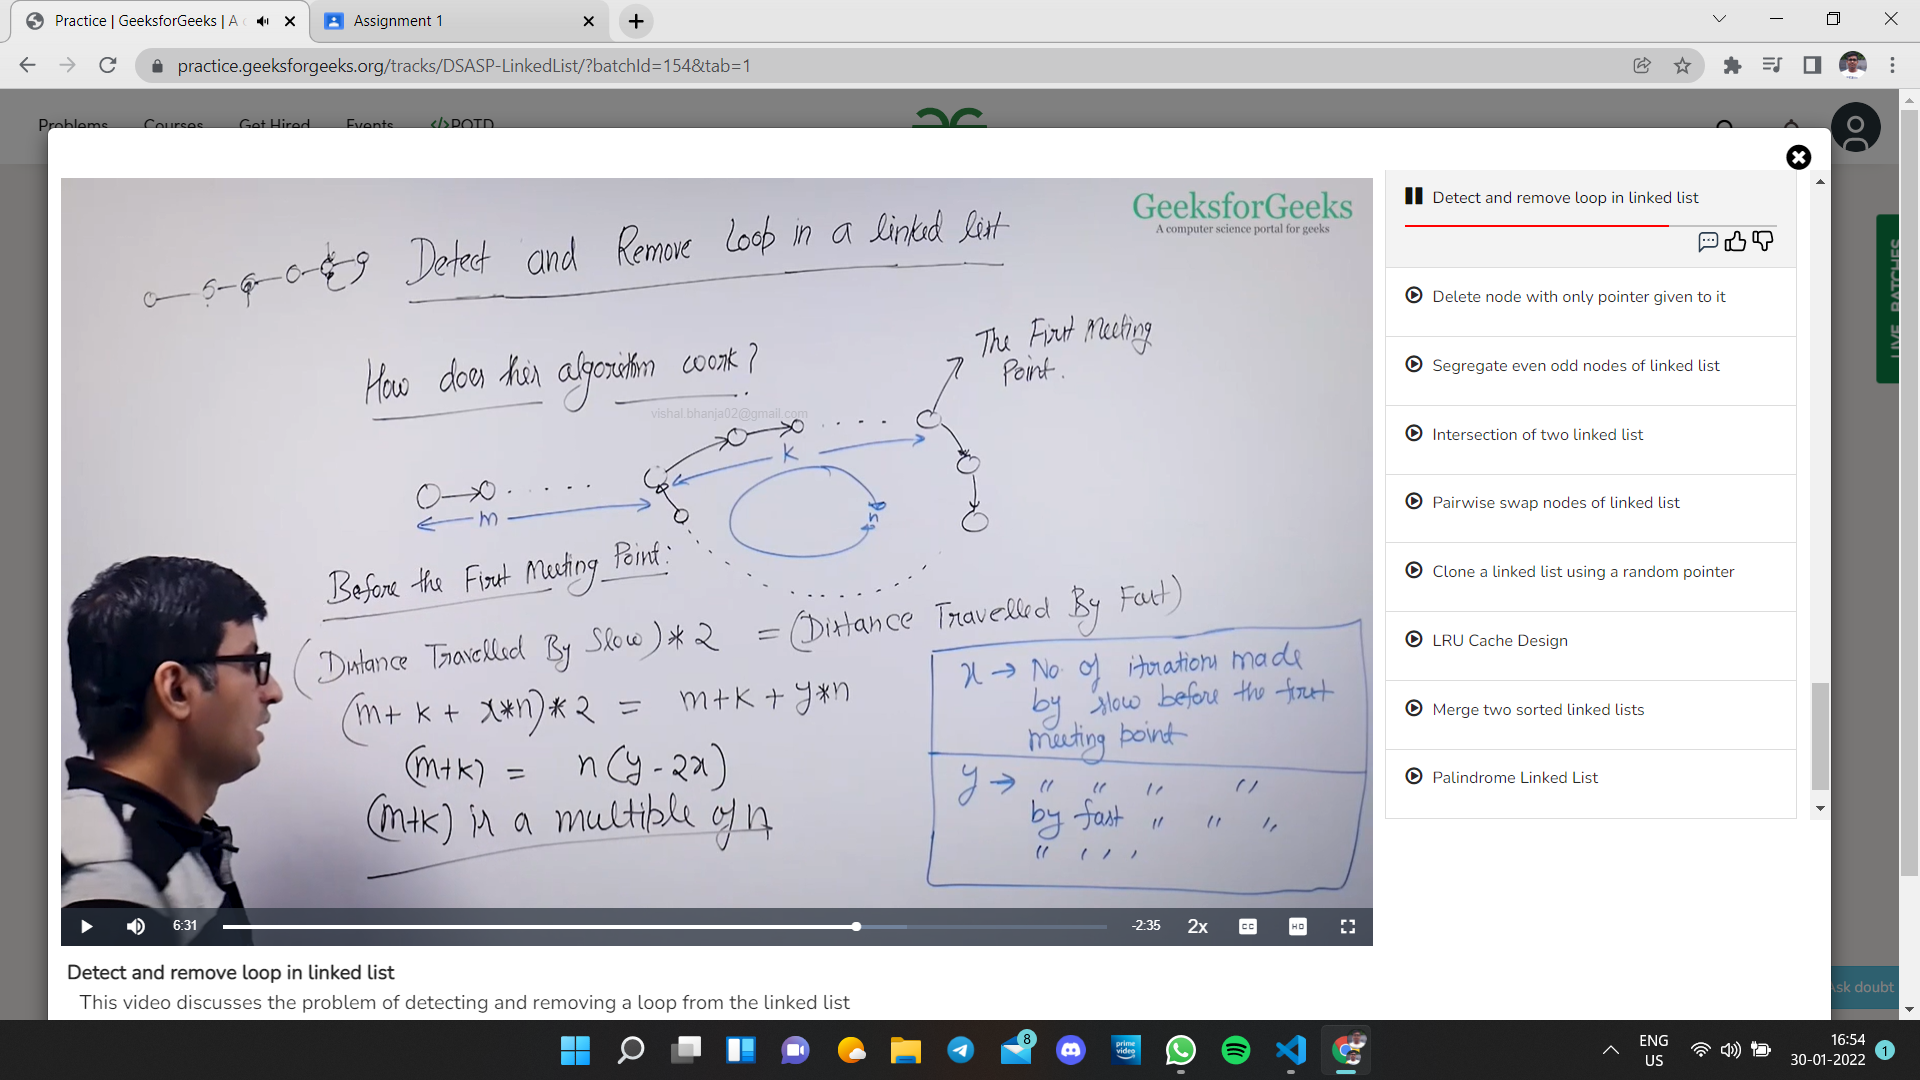 Practice | GeeksforGeeks | A
Assignment 1
practice.geeksforgeeks.org/tracks/DSASP-LinkedList/?batchId=154&tab=1
Problems
Courses
Get Hired
Events
</>POTD
GeeksforGeeks
A computer science portal for geeks
Detect and Remove Loop in a linked list
How does this algorithm work?
vishal.bhanja02@gmail.com
The First Meeting
Point.
k
m
n
Before the First Meeting Point:
(Distance Travelled By Slow) * 2 = (Distance Travelled By Fast)
(m+ k + x*n)* 2 = m+k + y*n
(m+k) = n(y - 2x)
(m+k) is a multiple of n
x → No of iterations made
by slow before the first
meeting point
y → " " " "
by fast " " "
" " "
6:31
-2:35
2x
CC
HD
Detect and remove loop in linked list
This video discusses the problem of detecting and removing a loop from the linked list
Detect and remove loop in linked list
Delete node with only pointer given to it
Segregate even odd nodes of linked list
Intersection of two linked list
Pairwise swap nodes of linked list
Clone a linked list using a random pointer
LRU Cache Design
Merge two sorted linked lists
Palindrome Linked List
LIVE BATCHES
Ask doubt
8
prime video
ENG
US
16:54
30-01-2022
1